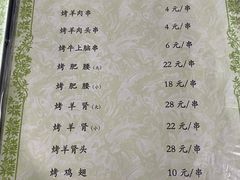 烤羊肉串 4 元/串
烤羊肉头串 4 元/串
烤牛上脑串 6 元/串
烤肥腰(大) 22 元/串
烤肥腰(小) 18 元/串
烤羊肾(大) 28 元/串
烤羊肾(小) 22 元/串
烤羊肾头 28 元/串
烤鸡翅 10 元/串